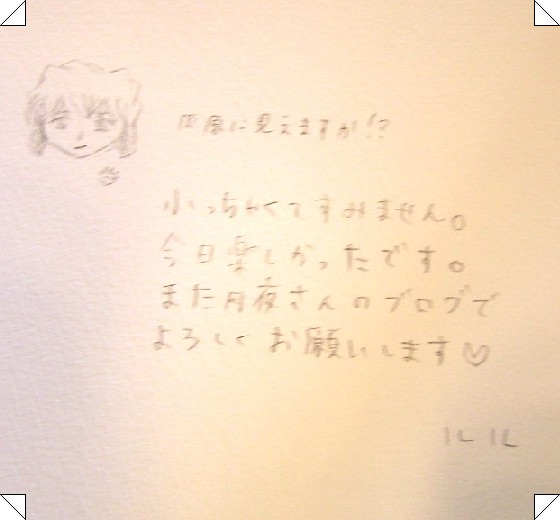 灰原に見えますか!?
小っちゃくてすみません。
今日楽しかったです。
また月夜さんのブログで
よろしくお願いします♡
ルル